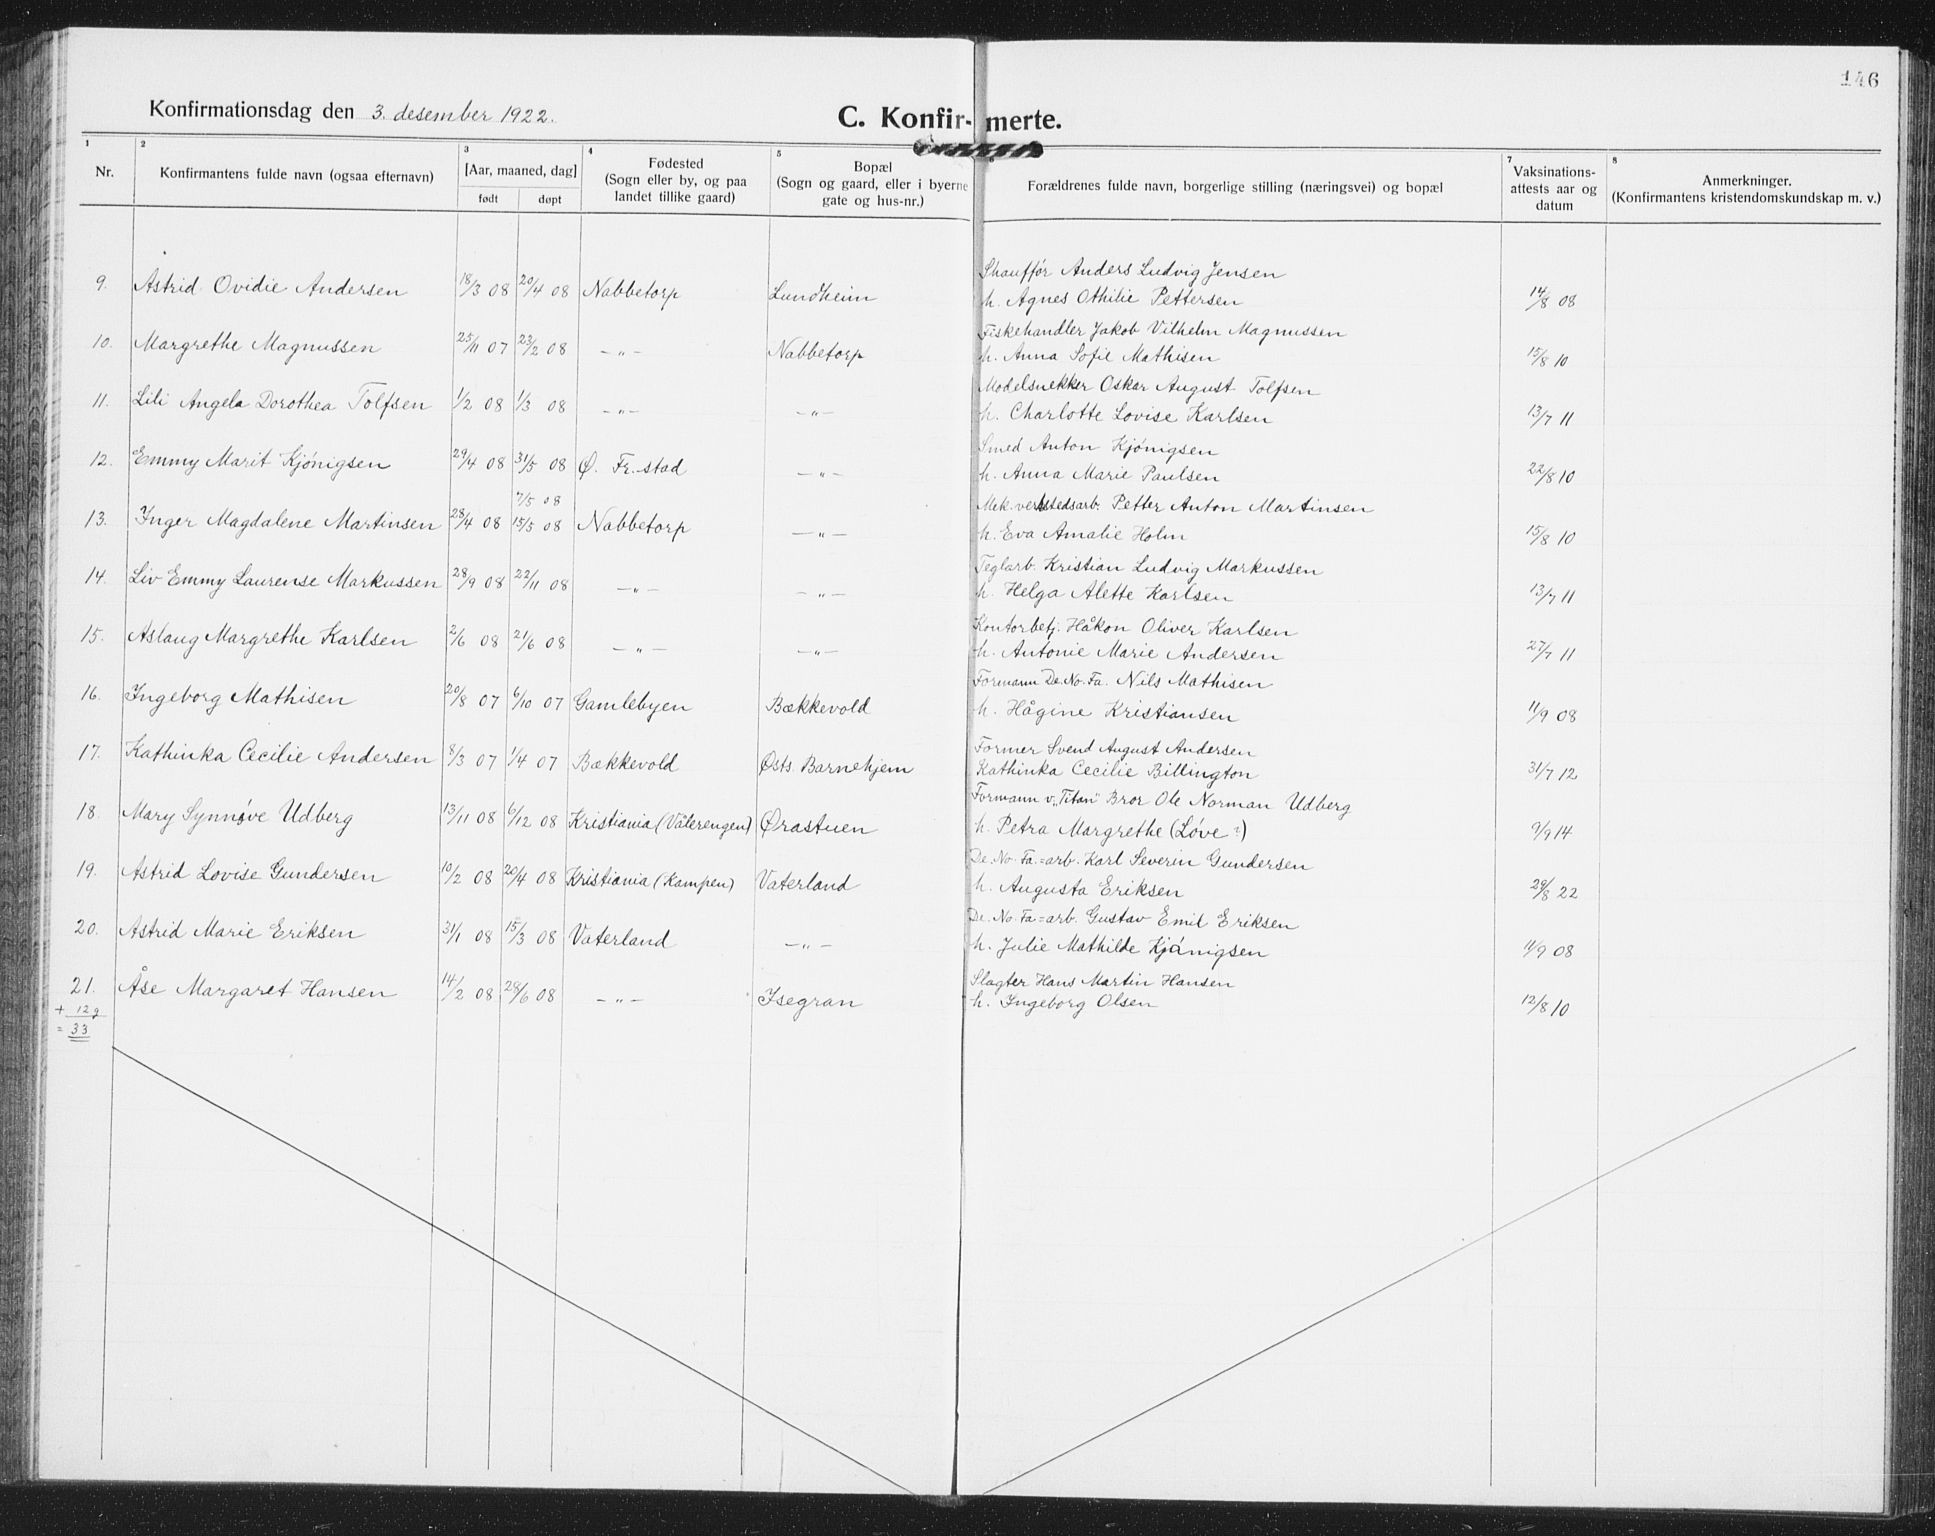 146
Konfirmationsdag den 3. desember 1922.
C. Konfir- merte.
1 2 3 4 5 6 7 8
Nr.
Konfirmantens fulde navn (ogsaa efternavn)
[Aar, maaned, dag]
født døpt
Fødested
(Sogn eller by, og paa
landet tillike gaard)
Bopæl
(Sogn og gaard, eller i byerne
gate og hus-nr.)
Forældrenes fulde navn, borgerlige stilling (næringsvei) og bopæl
Vaksinations-
attests aar og
datum
Anmerkninger.
(Konfirmantens kristendomskundskap m. v.)
Shauffør Anders Ludvig Jensen
9. Astrid Ovidie Andersen 18/3 08 20/4 08 Nabbetorp Lundheim h. Agnes Othilie Pettersen 14/8 08
Fiskehandler Jakob Vilhelm Magnussen
10. Margrethe Magnussen 25/11 07 23/2 08 — „ — Nabbetorp h. Anna Sofie Mathisen 15/8 10
Modelsnekker Oskar August Tolfsen
11. Lili Angela Dorothea Tolfsen 1/2 08 1/3 08 — „ — — „ — h. Charlotte Lovise Karlsen 13/7 11
Smed Anton Kjønigsen
12. Emmy Marit Kjønigsen 29/4 08 31/5 08 Ø. Fr.stad — „ — h. Anna Marie Paulsen 22/8 10
7/5 08 Mek. verkstedsarb. Petter Anton Martinsen
13. Inger Magdalene Martinsen 28/4 08 15/5 08 Nabbetorp — „ — h. Eva Amalie Holm 15/8 10
Teglarb. Kristian Ludvig Markussen
14. Liv Emmy Laurense Markussen 28/9 08 22/11 08 — „ — — „ — h. Helga Alette Karlsen 13/7 11
Kontorbetj. Håkon Oliver Karlsen
15. Aslaug Margrethe Karlsen 2/6 08 21/6 08 — „ — — „ — h. Antonie Marie Andersen 27/7 11
Formann De. No. Fa. Nils Mathisen
16. Ingeborg Mathisen 20/8 07 6/10 07 Gamlebyen Bækkevold h. Hågine Kristiansen 11/9 08
Former Svend August Andersen
17. Kathinka Cecilie Andersen 8/3 07 1/4 07 Bækkevold Østs. Barnehjem Kathinka Cecilie Billington 31/7 12
Formann v. „Titan" Bror Ole Norman Udberg
18. Mary Synnøve Udberg 13/11 08 6/12 08 Kristiania (Vålerengen) Ørastuen h. Petra Margrethe (Løve?) 9/9 14
De. No. Fa.=arb. Karl Severin Gundersen
19. Astrid Lovise Gundersen 10/2 08 20/4 08 Kristiania (Kampen) Vaterland h. Augusta Eriksen 29/8 22
De. No. Fa=arb. Gustav Emil Eriksen
20. Astrid Marie Eriksen 31/1 08 15/3 08 Vaterland — „ — h. Julie Mathilde Kjønigsen 11/9 08
Slagter Hans Martin Hansen
21. Åse Margaret Hansen 14/2 08 28/6 08 — „ — Isegran h. Ingeborg Olsen 12/8 10
+ 12 g
= 33